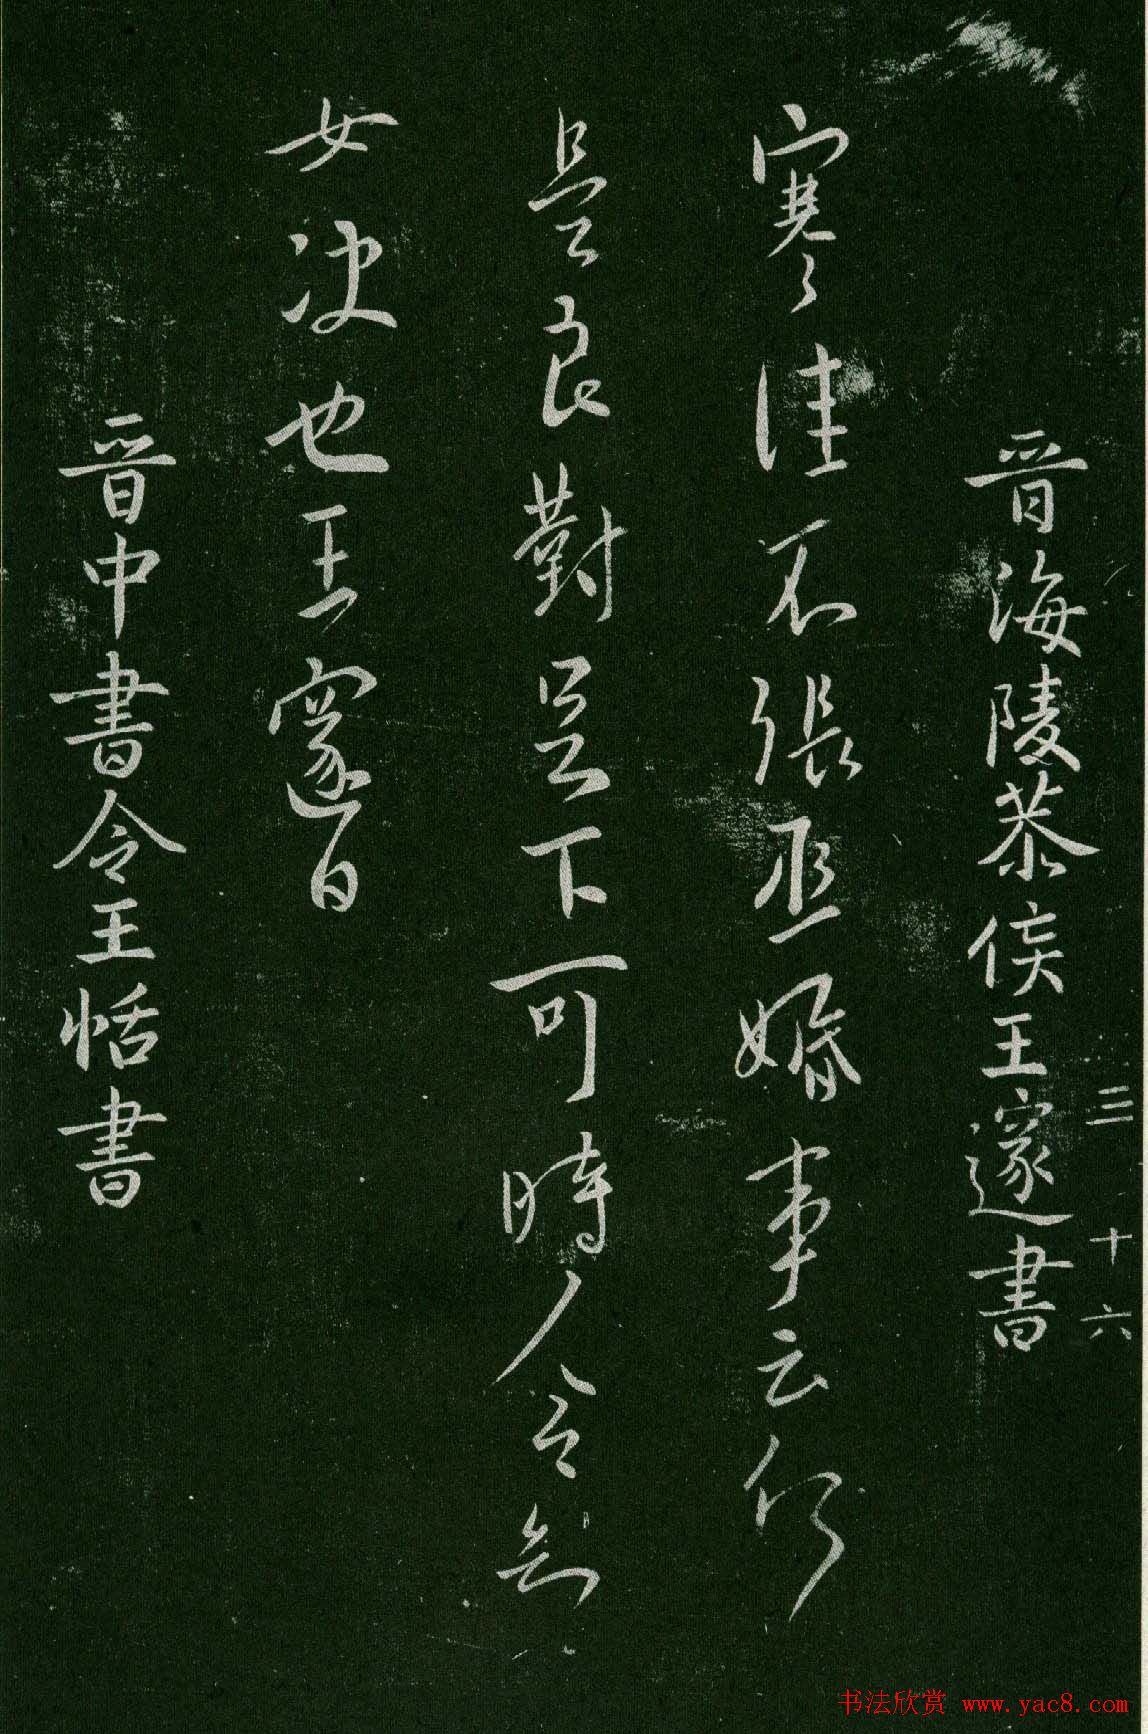 晉海陵恭侯王邃書
三 十六
寒佳不張丞婚事云何
是良對足下可時令知
女決也王邃白
晉中書令王恬書
书法欣赏 www.yac8.com